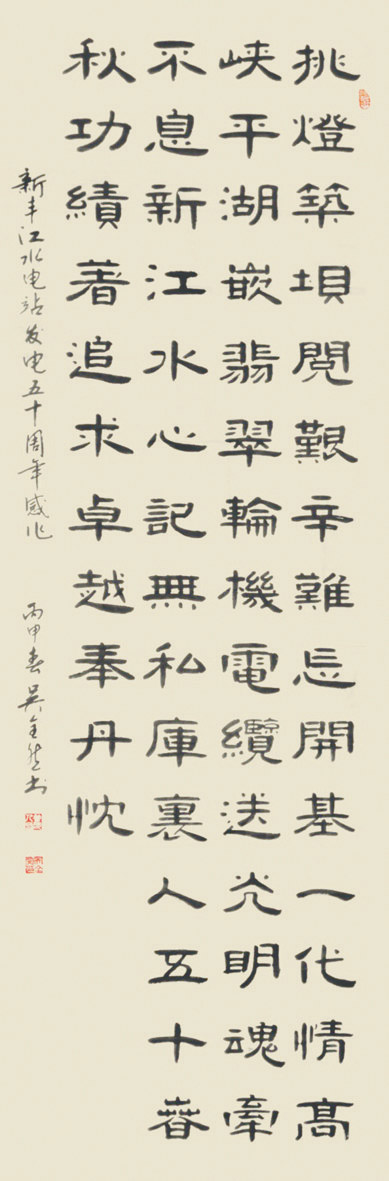 挑燈築垻閲艱辛難忘開基一代情高
峡平湖嵌翡翠輪機電纜送光明魂牽
不息新江水心記無私庫裏人五十春
秋功績著追求卓越奉丹忱
新丰江水电站发电五十周年感作 丙申春吴书